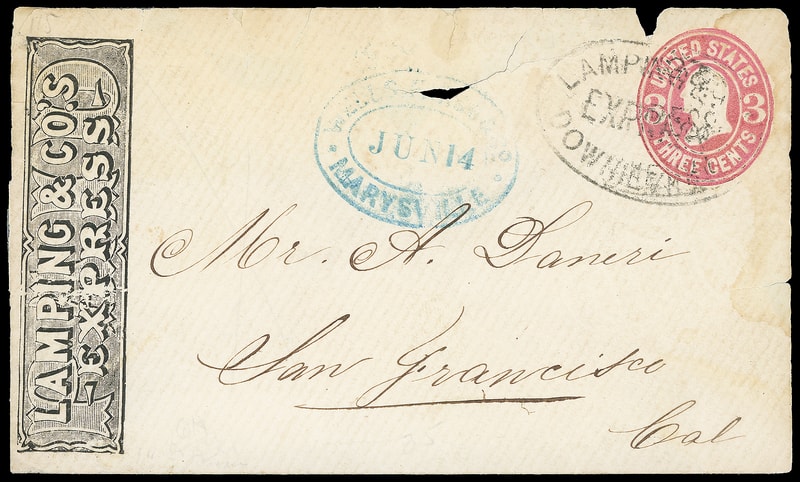 LAMPING & CO'S
EXPRESS
JUN 14
MARYSVILLE
LAMPING &
EXPRESS
UNITED STATES
3 3
THREE CENTS
Mr. A. Daneri
San Francisco
Cal